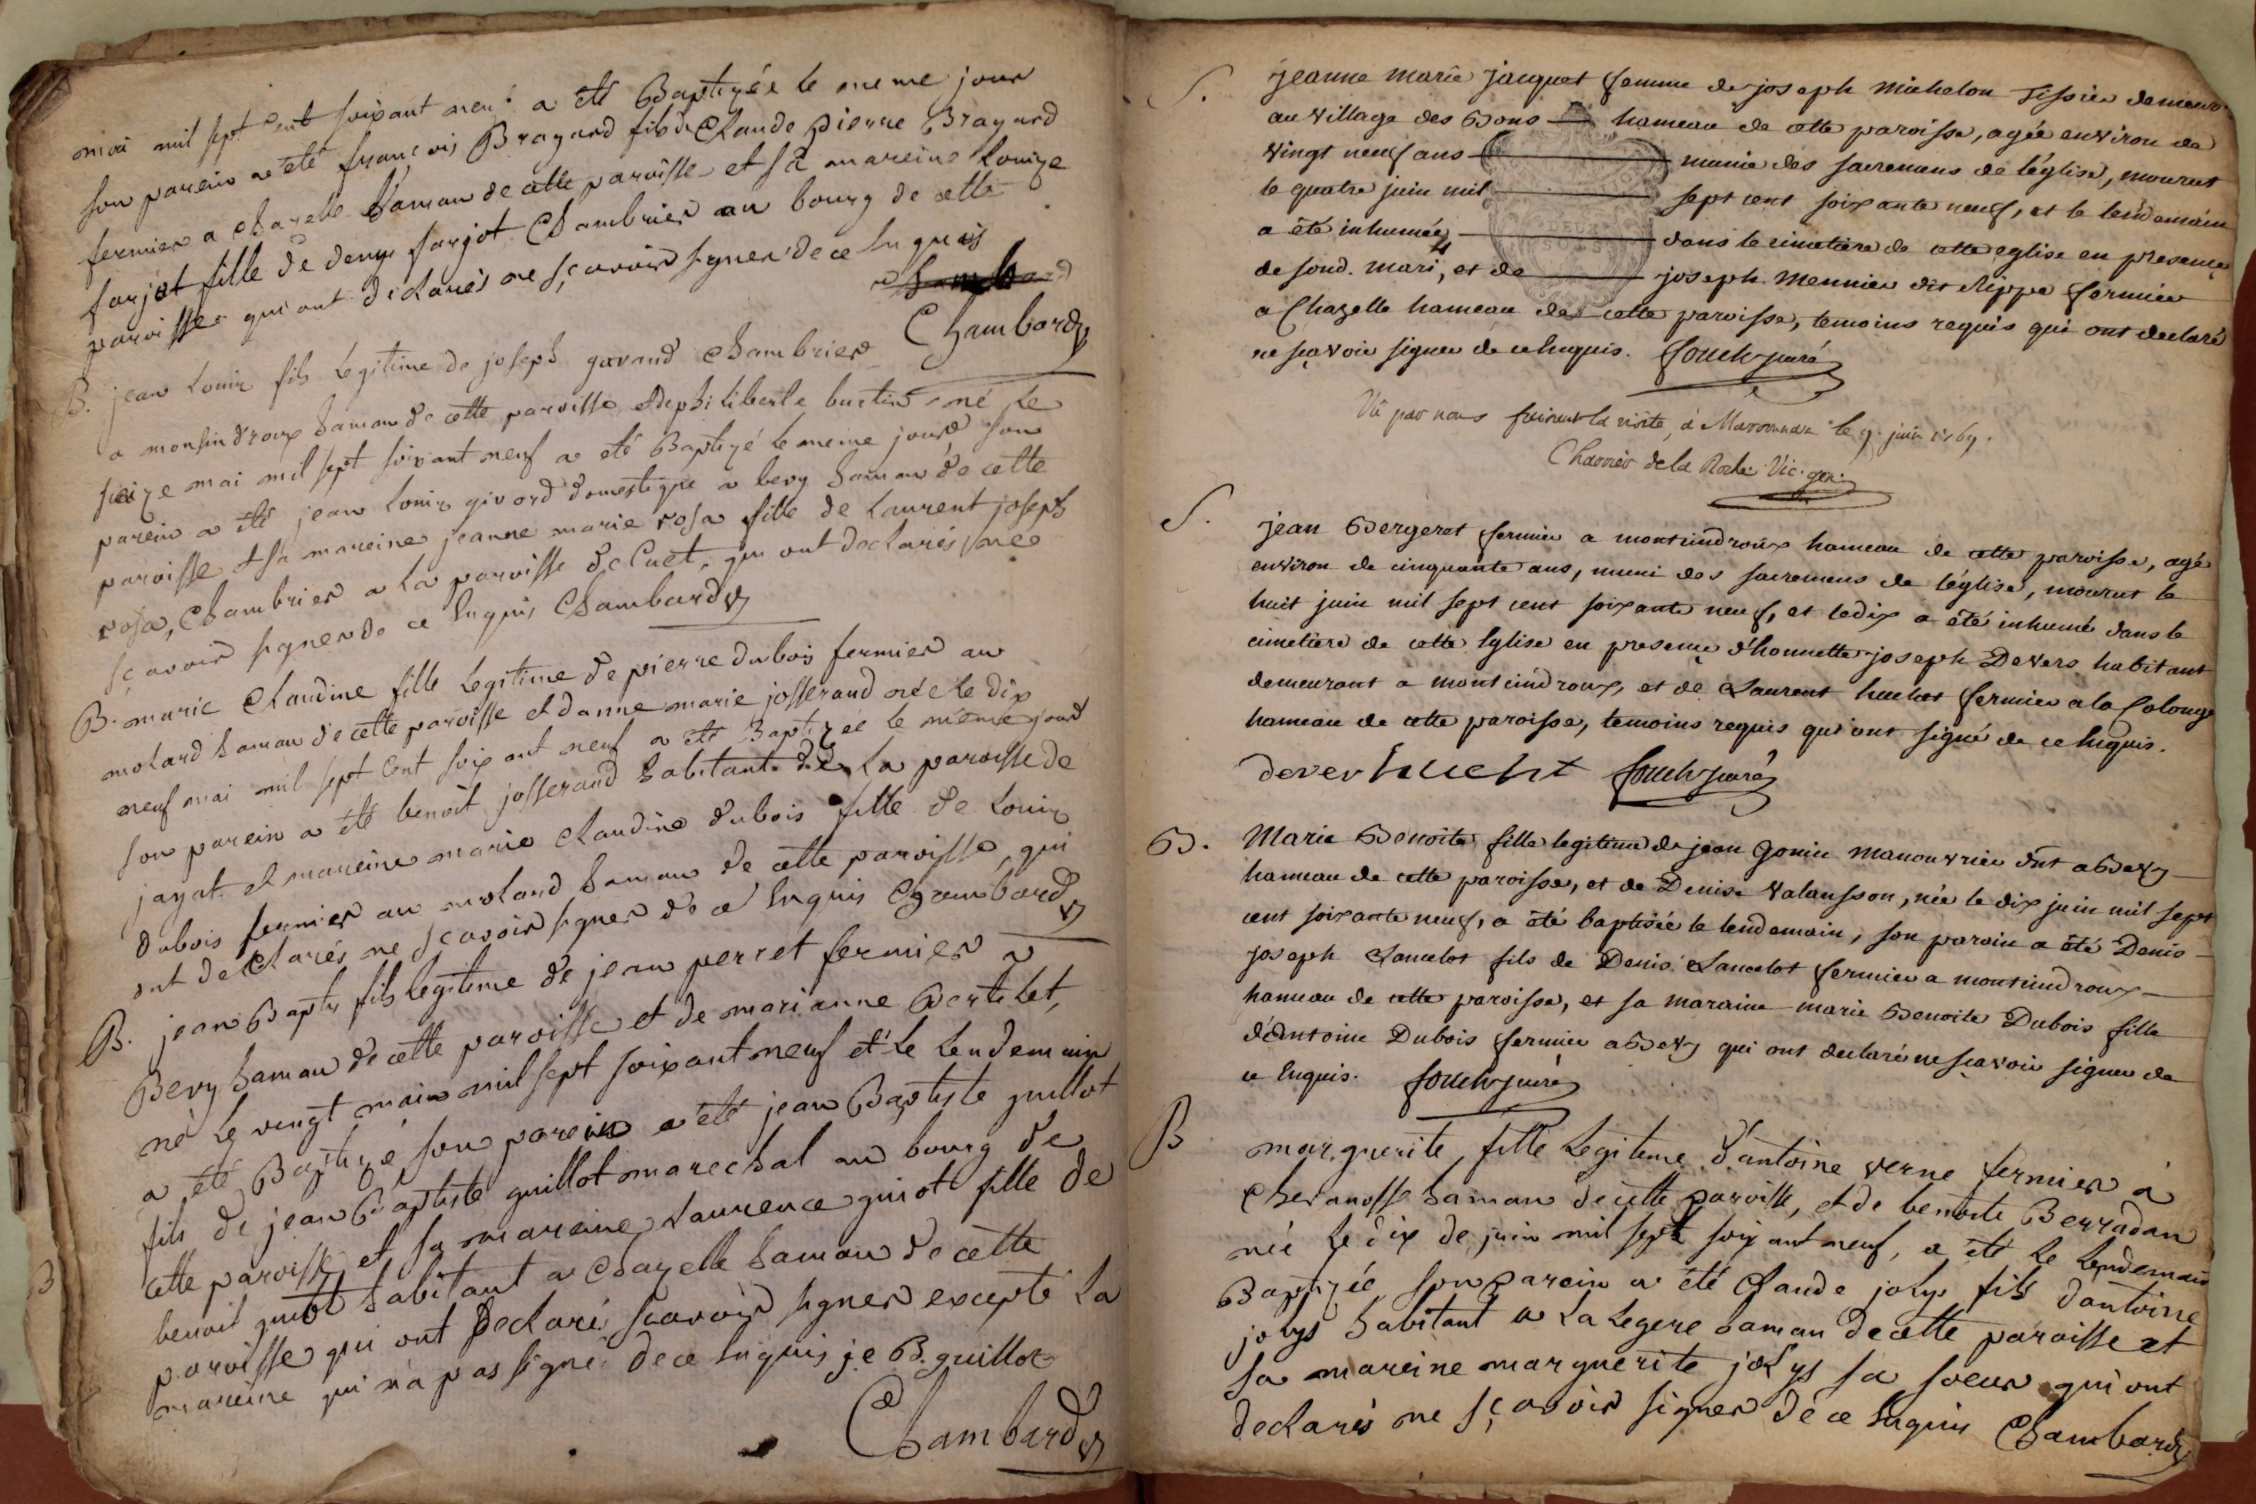 mai mil sept cent soixant neuf a été Baptizée le meme jour
son parein a été françois Brayard fils de Claude pierre Brayard
fermier a chazelle hamau de cette paroisse et sa mareine Louize
farjot fille de denys farjot Chambrier au bourg de cette
paroisse qui ont déclarés ne sçavoir signer de ce Enquis
Chambard
B. jean Louis fils Legitime de joseph gavand Chambrier
a monsindroux hamau de cette paroisse et de philiberte burtin né le
seize mai mil sept soixant neuf a été Baptizé le meme jour son
parein a été jean Louis givord domestique a bevy hamau de cette
paroisse et sa mareine jeanne marie rosa fille de Laurent joseph
rosa, Chambrier a La paroisse de Cuet, qui ont declarés ne
sçavoir signer de ce Enquis Chambard
B. marie Claudine fille Legitime de pierre dubois fermier au
molard hamau de cette paroisse et danne marie josserand née le dix
neuf mai mil sept cent soix ant neuf a été Baptizée le meme jour
son parein a été benoit josserand habitant de La paroisse de
jayat et mareine marie Claudine dubois fille de Louis
dubois fermier au moland hamau de cette paroisse, qui
ont declarés ne sçavoir signer de ce Enquis Chambard
B. jean Baptiste fils legitime de jean perret fermier a
Bevy hamau de cette paroisse et de marianne Bertelet,
né le vengt main mil sept soixant neuf et le Lendemain
a été Baptizé son parein a été jean Baptiste guillot
fils de jean Baptiste guillot marechal au bourg de
cette paroisse et sa mareine Laurence guiot fille de
benoit guiot habitant a Chazelle hamau de cette
paroisse qui ont declaré sçavoir signer excepté La
mareine qui n'a pas signé de ce Enquis j.e B. guillot
Chambard
S. jeanne marie jacquet femme de joseph Michelon Tissier demeur.
au village des Bons hameau de cette paroisse, agée environ de
vingt neuf ans munie des sacremens de l'église, mourut
le quatre juin mil sept cent soixante neuf, et le lendemain
a été inhumée dans le cimetiere de cette eglise en presence
de soud. mari, et de joseph Mennier dit Lippe fermier
a Chazelle hameau de cette paroisse, temoins requis qui ont declaré
ne sçavoir signer de ce Enquis.
Vû par nous faisant la visite, à Marsonnas le 9. juin 1769.
Charrier de la Roche Vic. gen.
S. jean Bergeret fermier a montsindroux hameau de cette paroisse, agé
environ de cinquante ans, muni des sacremens de l'église, mourut le
huit juin mil sept cent soixante neuf, et le dix a été inhumé dans le
cimetiere de cette Eglise en presence d'honnette joseph Devers habitant
demeurant a montsindroux, et de Laurent huchet fermier a la Colonge
hameau de cette paroisse, temoins requis qui ont signé de ce Enquis.
dever hucht
B. Marie Benoite fille legitime de jean Gonin manouvrier dnt a Bevy
hameau de cette paroisse, et de Denise Valansson, née le dix juin mil sept
cent soixante neuf, a été baptisée le lendemain, son parain a été Denis
joseph Lancelot fils de Denis Lancelot fermier a montsindroux
hameau de cette paroisse, et sa maraine marie Benoite Dubois fille
d'Antoine Dubois fermier a Bevy qui ont declaré ne sçavoir signer de
ce Enquis.
B marguerite fille Legitime d'antoine verne fermier à
Chevanosse hamau de cette paroisse, et de benoite Berradan
née le dix de juin mil sept soixant neuf, a été le Lendemain
Baptizée, son parein a été Claude joly fils d'antoine
jolys habitant a La Legere hamau de cette paroisse et
sa mareine marguerite jolys sa soeur qui ont
declarés ne sçavoir signer de ce Enquis Chambard